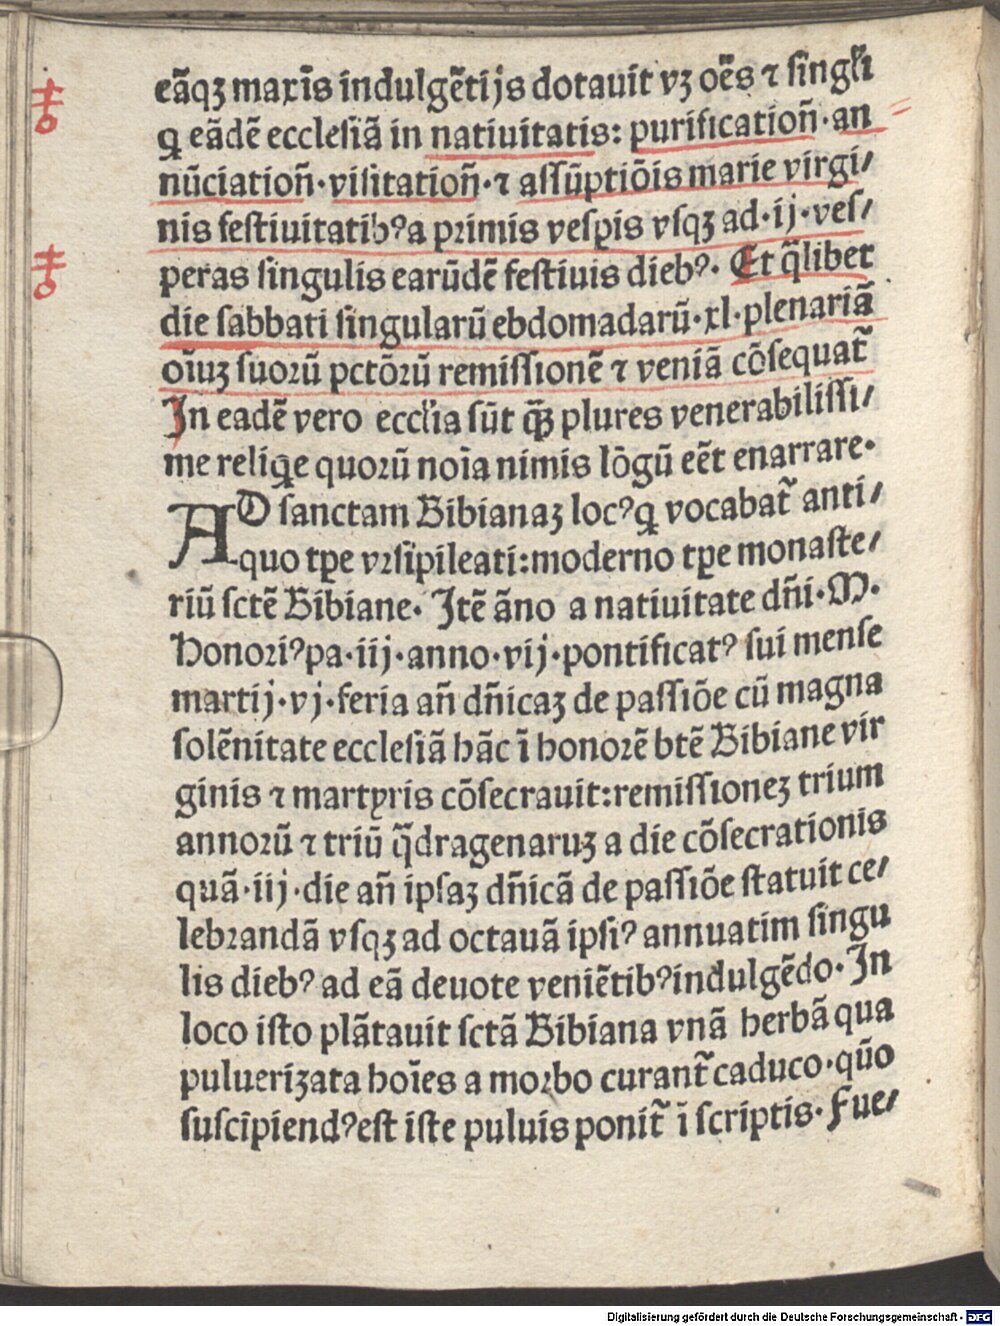 eãqꝫ maxīs indulgētijs dotauit vꝫ oēs ⁊ singl̄i
ꝗ eādē ecclesiā in natiuitatis: purificatioñ·an
nūciatioñ·visitatioñ·⁊ assūptiōis marie virgi/
nis festiuitatib⁹a primis vesꝑis vsqꝫ ad·ij·ves/
peras singulis earūdē festiuis dieb⁹· Et q̄libet
die sabbati singularū ebdomadarū·xl·plenariā
oīuꝫ suoꝛū pctōꝛū remissionē ⁊ veniā cōsequat᷑
In eadē vero eccl̄ia sūt ꝙ̄ plures venerabilissi/
me reliꝗe quoꝛū noīa nimis lōgū eēt enarrare·
AD sanctam Bibianaꝫ loc⁹ꝗ vocabat᷑ anti/
quo tꝑe vꝛsipileati:moderno tꝑe monaste/
riū sctē Bibiane· Itē āno a natiuitate dñi·M·
Honoꝛi⁹pa·iij·anno·vij·pontificat⁹ sui mense
martij·vj·feria añ dñicaꝫ de passiōe cū magna
solēnitate ecclesiā hāc ī honoꝛē btē Bibiane vir
ginis ⁊ martyris cōsecrauit:remissioneꝫ trium
annoꝛū ⁊ triū q̄dragenaruꝫ a die cōsecrationis
quā·iij·die añ ipsaꝫ dñicā de passiōe statuit ce/
lebꝛandā vsqꝫ ad octauā ipsi⁹ annuatim singu
lis dieb⁹ ad eā deuote veniētib⁹indulgēdo· In
loco isto plātauit sctā Bibiana vnā herbā qua
puluerizata hoīes a moꝛbo curant᷑ caduco·quō
suscipiend⁹est iste puluis ponit᷑ ī scriptis· Fue/
Digitalisierung gefördert durch die Deutsche Forschungsgemeinschaft - DFG